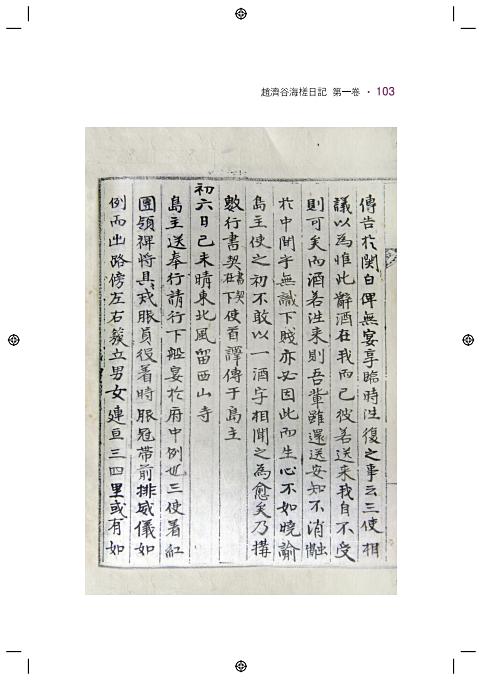 趙濟谷海槎日記 第一卷 · 103
傳告於関白俾無宴享臨時徃復之事云三使相
議以為惟此辭酒在我而已彼若送来我自不受
則可矣而酒若徃来則吾輩雖還送安知不消融
於中間乎無識下賤亦必因此而生心不如曉諭
島主使之初不敢以一酒字相聞之為愈矣乃搆
數行書契書契在下使首譯傳于島主
初六日己未晴東北風留西山寺
島主送奉行請行下船宴於府中例也三使着紅
團領裨將具戎服員役着時服冠帶前排威儀如
例而出路傍左右簇立男女連亘三四里或有如